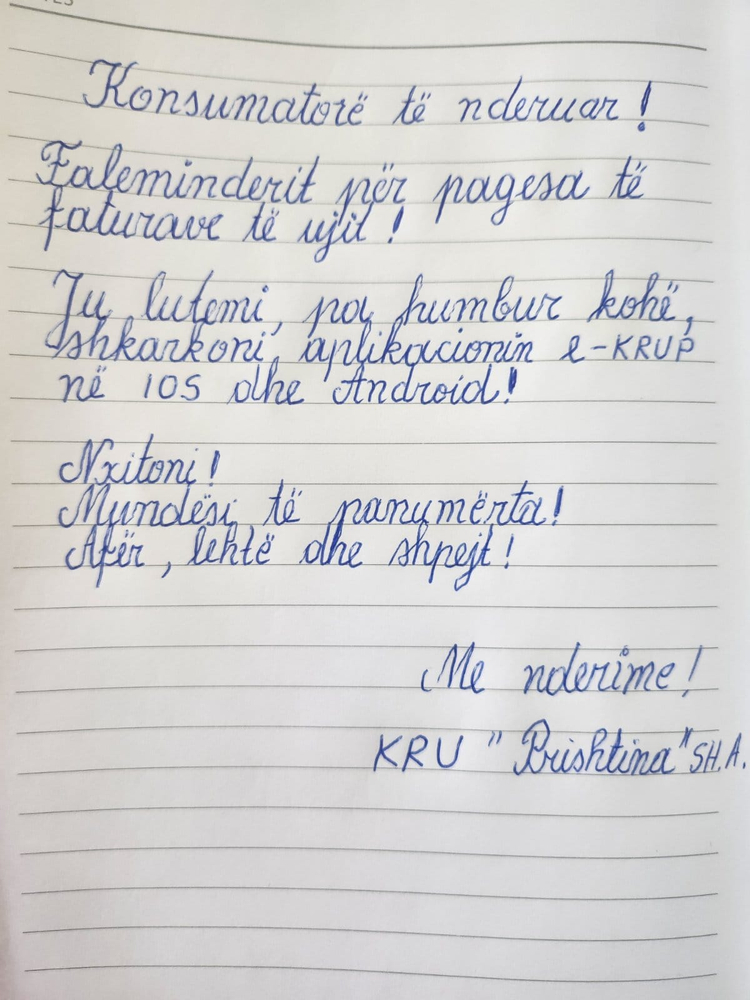 Konsumatorë të nderuar!
Faleminderit për pagesa të
faturave të ujit!
Ju lutemi, pa humbur kohë,
shkarkoni aplikacionin e-KRUP
në IOS dhe Android!
Nxitoni!
Mundësi të panumërta!
Afër, lehtë dhe shpejt!
Me nderime!
KRU "Prishtina" SH.A.